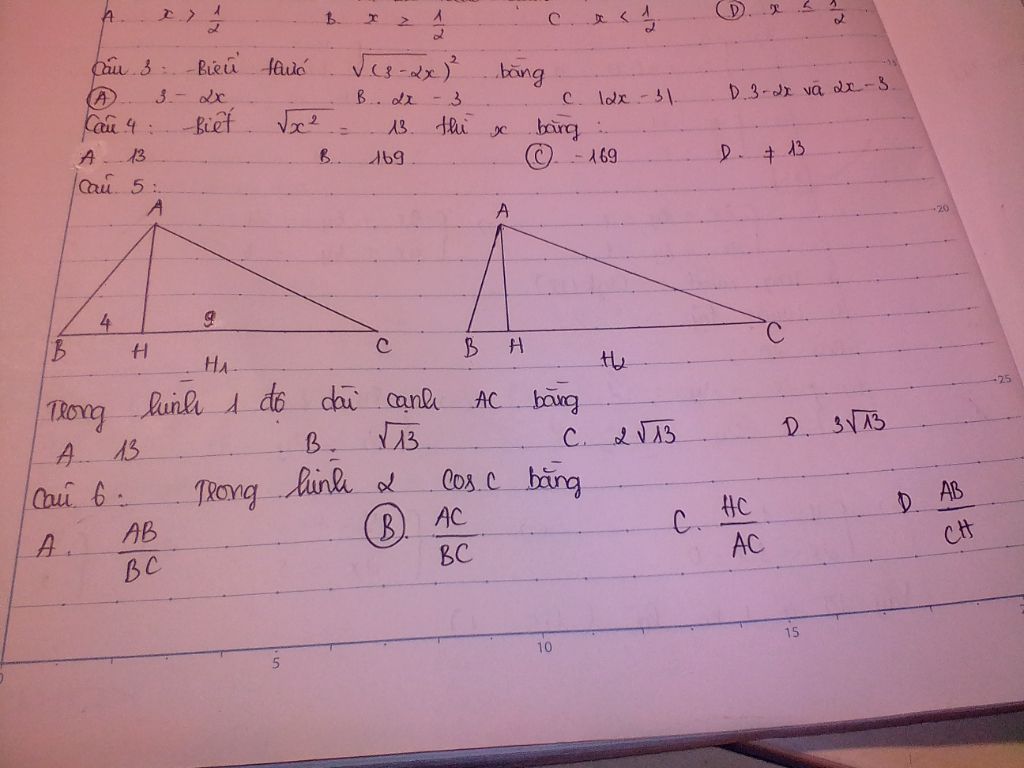 A. x > 1/2 B. x ≥ 1/2 C. x < 1/2 D. x ≤ 1/2
Câu 3: Biểu thức √(3-2x)² bằng
A 3-2x B. 2x-3 C. |2x-3| D. 3-2x và 2x-3
Câu 4: Biết √x² = 13 thì x bằng:
A. 13 B. 169 C -169 D. ± 13
Câu 5:
A A
4 9
B H C B H C
H1 H2
Trong hình 1 độ dài cạnh AC bằng
A. 13 B. √13 C. 2√13 D. 3√13
Câu 6: Trong hình 2 cos C bằng
A. AB/BC B. AC/BC C. HC/AC D AB/CH
15
20
25
0 5 10 15